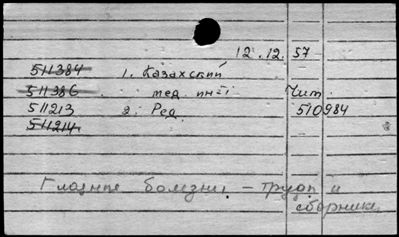 12.12.57
511384 1. Казахский
511386 мед. ин-т Чит.
511213 2. Ред. 510984
511214
Глазные болезни – труды и
сборники